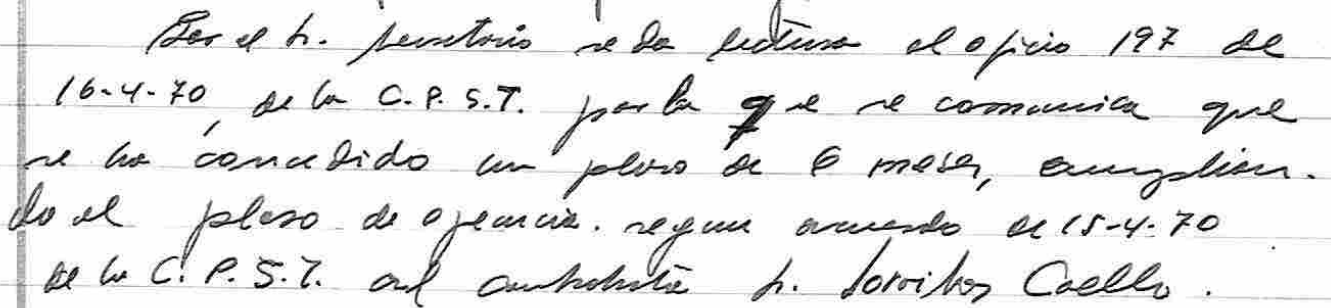 Por el Sr. Secretario se da lectura al oficio 197 de
16-4-70, de la C.P.S.T. por la que se comunica que
se ha concedido un plazo de 6 meses, amplian-
do el plazo de segun acuerdo de 15-4-70
de la C.P.S.T. al Sr. Coello.